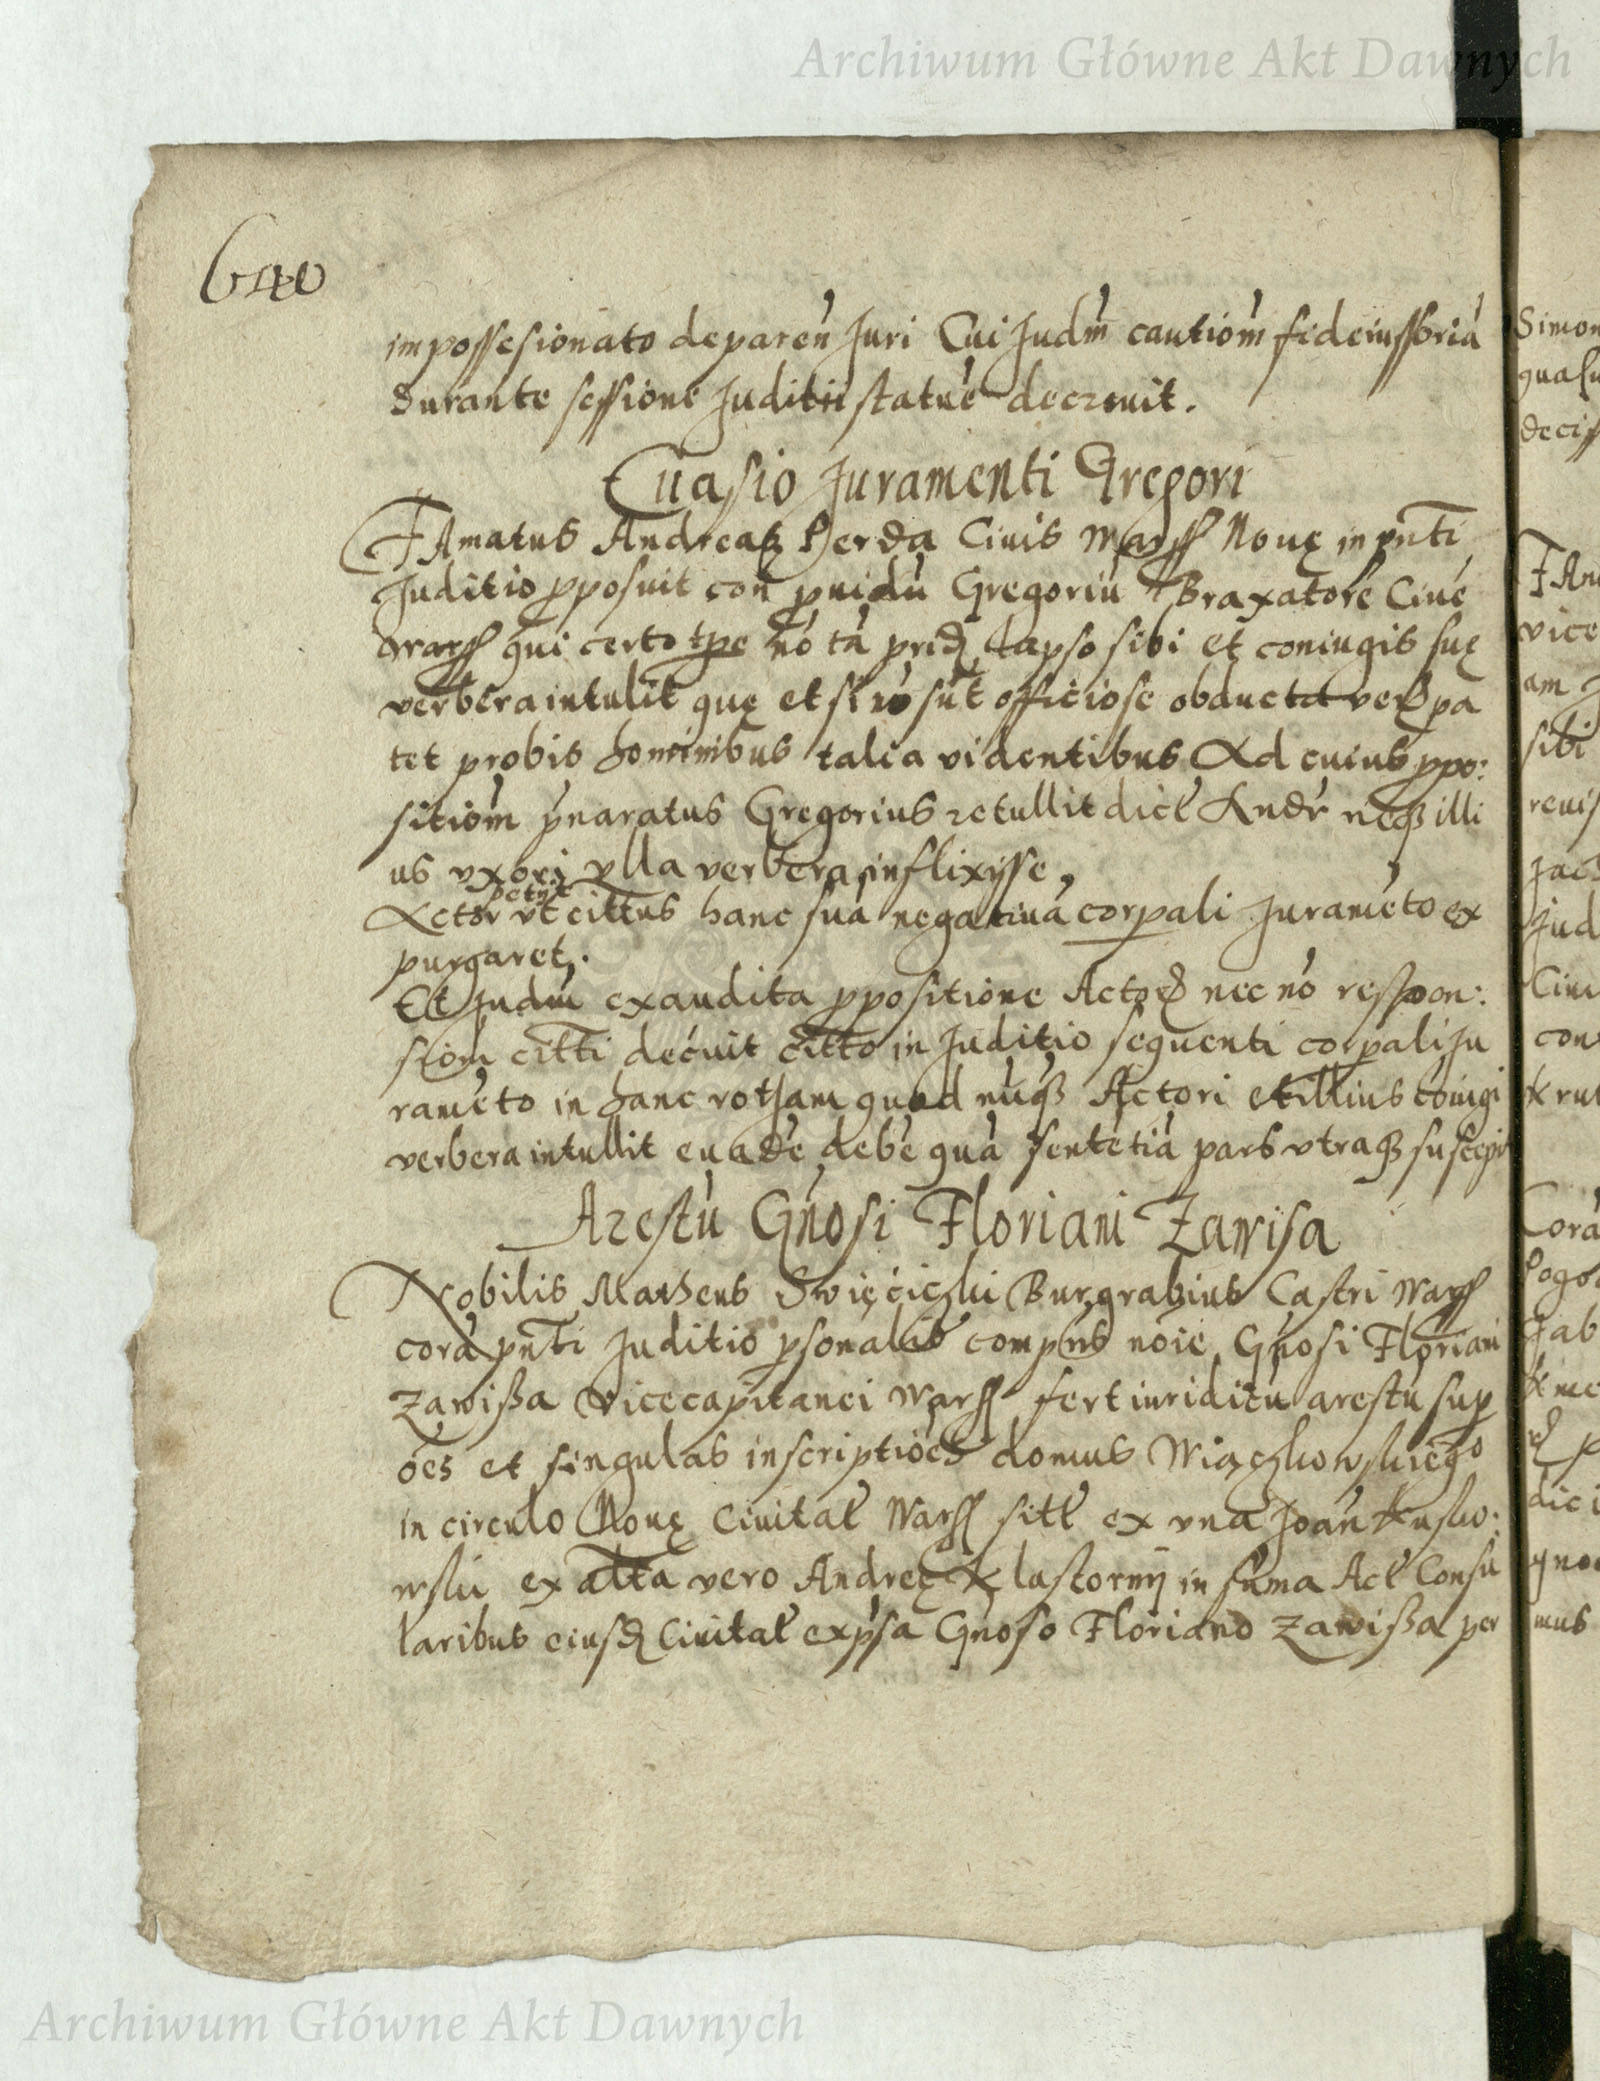 Archiwum Główne Akt Dawnych
640
impossesionato deparen Juri Cui Judm cautiom fideiussoria
durante sessione Juditii statue decreuit.
Euasio Juramenti Gregori
FAmatus Andreas Herda Ciuis Warss Nouę in pnti
Juditio pposuit con prouidu Gregoriu Braxatore Ciue
Warss qui certo tpe no ta prid lapso sibi et coniugis suę
verbera intulit quę et si no sut officiose obducta verū pa
tet probis hominibus talia videntibus Ad cuius ppo:
sitiom pnaratus Gregorius retullit dict Andr neqz illi
us vxori vlla verbera inflixisse,
Actor petyt vt cittus hanc sua negatiua corpali Jurameto ex
purgaret.
Et Judm exaudita ppositione Actor nec no respon:
siom citti decuit citto in Juditio sequenti corpali Ju
rameto in hanc rotham quod nuqz Actori et illius coiugi
verbera intullit euade debe qua sentetia pars vtraqz suscepit
Arestu Gnosi Floriani Zawisa
Nobilis Matheus Swięciczki Burgrabius Castri Warss
cora pnti Juditio psonalit compns noie Gnosi Floriani
Zawißa Vicecapitanei Warss fert iuriditu arestu sup
oes et singulas inscriptioes domus Wiączkowskiego
in circulo Nouę Ciuitat Warss sitt ex vna Joan Kusko:
wski ex altta vero Andreę Klastorny in suma Act Consu
laribus eiusd Ciuitat expsa Gnoso Floriano Zawißa per
Simon
decis
vice
am
sibi
Jud
con
Cora
dici
mus
Archiwum Główne Akt Dawnych